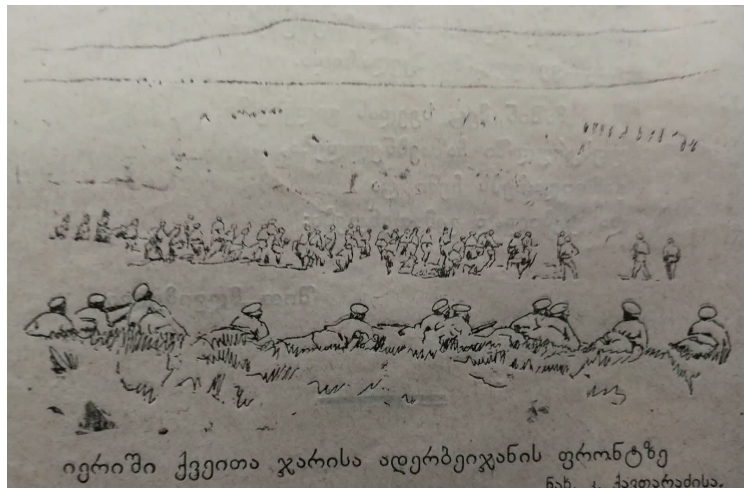 იერიში ქვეითა ჯარისა ადერბეიჯანის ფრონტზე
ნახ. კ. ქავთარაძისა.